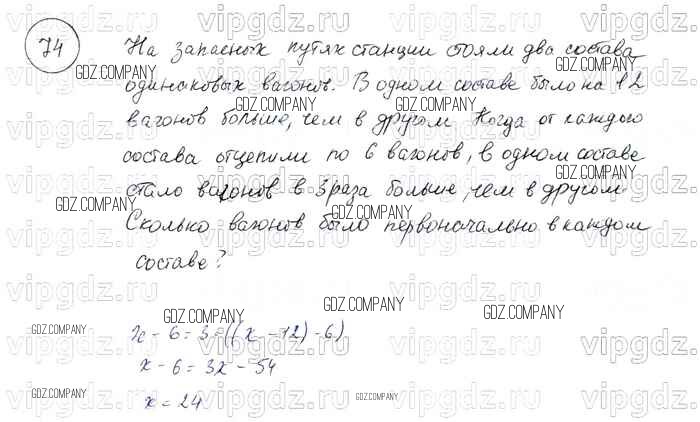 74
На запасных путях станции стояли два состава
одинаковых вагонов. В одном составе было на 12
вагонов больше, чем в другом. Когда от каждого
состава отцепили по 6 вагонов, в одном составе
стало вагонов в 3 раза больше, чем в другом.
Сколько вагонов было первоначально в каждом
составе?
x - 6 = 3 · ((x - 12) - 6)
x - 6 = 3x - 54
x = 24
GDZ.COMPANY
vipgdz.ru